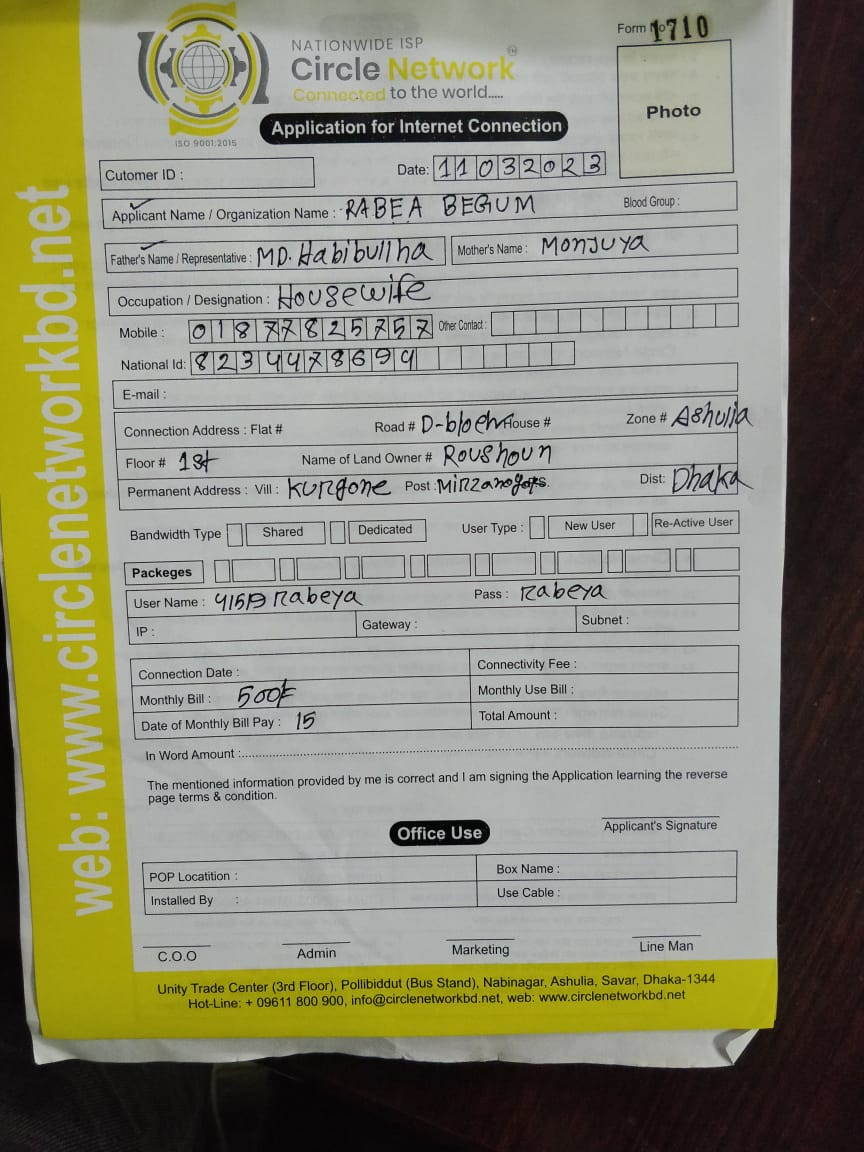 NATIONWIDE ISP
Circle Network
Connected to the world.....
ISO 9001:2015
Form No 1710
Photo
Application for Internet Connection
Cutomer ID :
Date: 11032023
Applicant Name / Organization Name : RABEA BEGUM Blood Group :
Father's Name / Representative : MD. Habibullha Mother's Name : Monjuya
Occupation / Designation : Housewife
Mobile : 01877825757 Other Contact :
National Id: 8234478699
E-mail :
Connection Address : Flat # Road # D-bloch House # Zone # Ashulia
Floor # 1st Name of Land Owner # Roushoun
Permanent Address : Vill : Kurgone Post : Dist: Dhaka
Bandwidth Type Shared Dedicated User Type : New User Re-Active User
Packeges
User Name : Rabeya Pass : Rabeya
IP : Gateway : Subnet :
Connection Date : Connectivity Fee :
Monthly Bill : 500/= Monthly Use Bill :
Date of Monthly Bill Pay : 15 Total Amount :
In Word Amount :
The mentioned information provided by me is correct and I am signing the Application learning the reverse
page terms & condition.
Applicant's Signature
Office Use
POP Locatition : Box Name :
Installed By : Use Cable :
C.O.O Admin Marketing Line Man
Unity Trade Center (3rd Floor), Pollibiddut (Bus Stand), Nabinagar, Ashulia, Savar, Dhaka-1344
Hot-Line: + 09611 800 900, info@circlenetworkbd.net, web: www.circlenetworkbd.net
web: www.circlenetworkbd.net